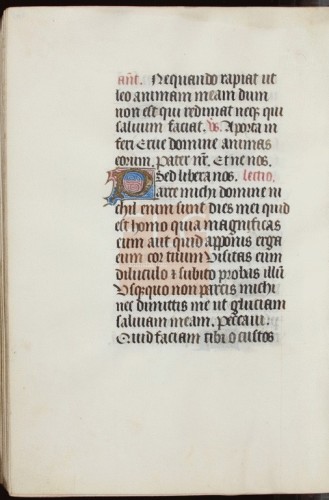 ant. Nequando rapiat ut
leo animam meam dum
non est qui redimat neq; qui
saluum faciat. vs. A porta in
feri Erue domine animas
eorum. Pater nr. Et ne nos.
Sed libera nos. lectio.
Parce michi domine ni
chil enim sunt dies mei quid
est homo quia magnificas
eum aut quid apponis erga
eum cor tuum Uisitas eum
diluculo ⁊ subito probas illū
Usq;quo non parcis michi
nec dimittis me ut gluciam
saliuam meam. Peccaui:
Quid faciam tibi o custos